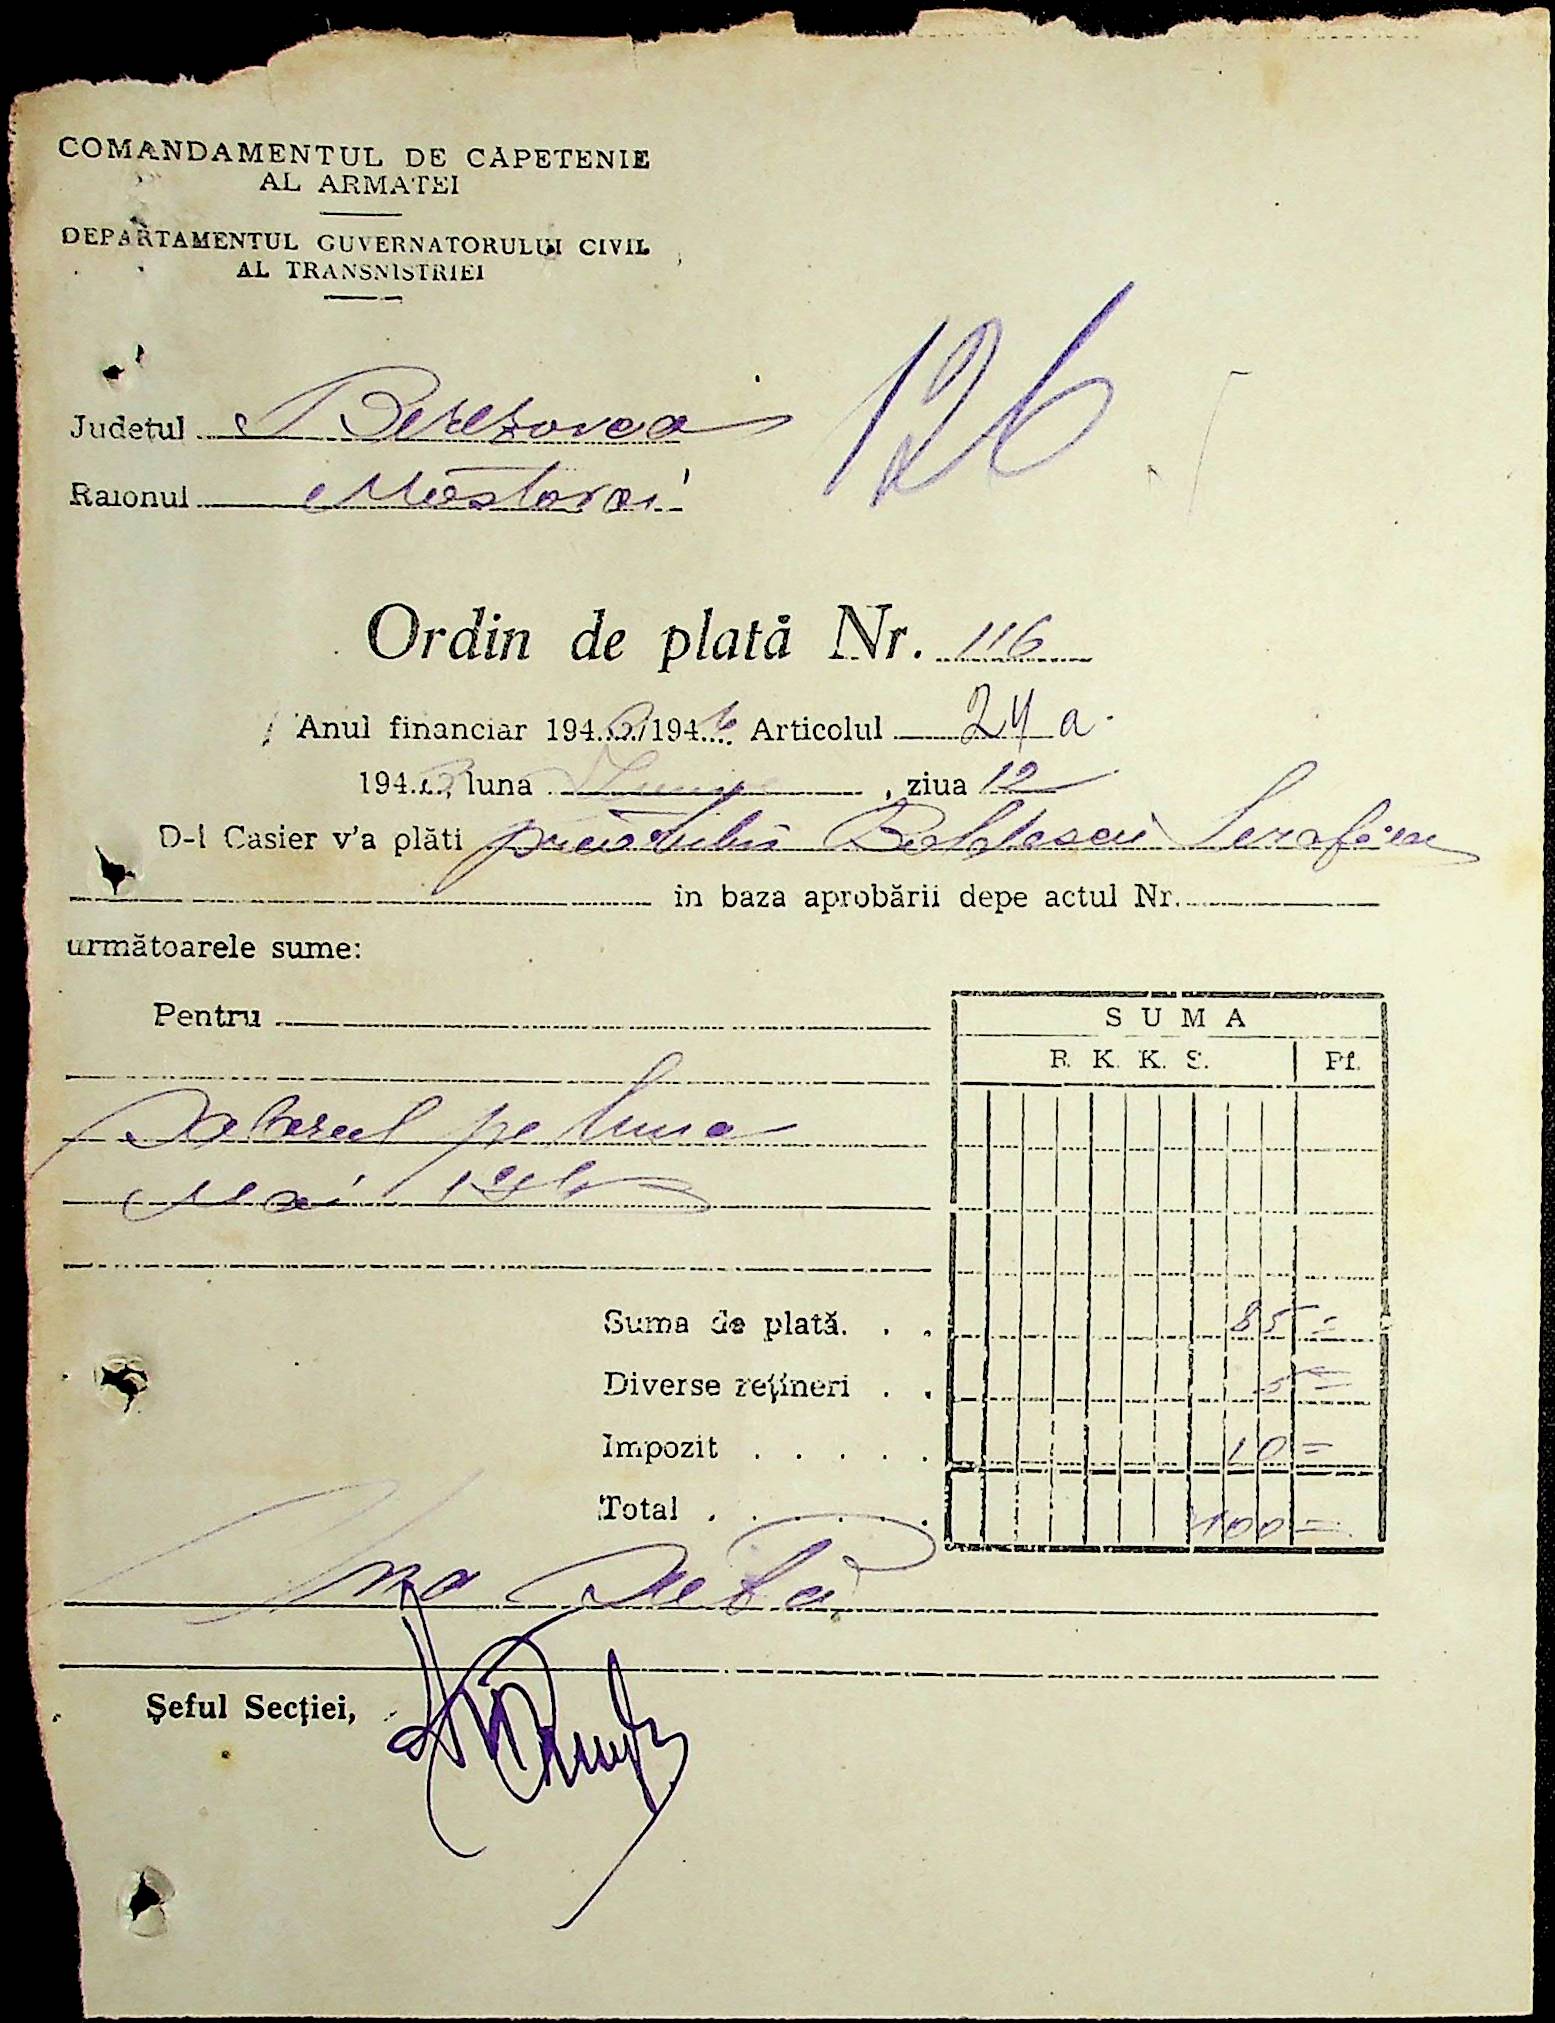 COMANDAMENTUL DE CAPETENIE
AL ARMATEI
DEPARTAMENTUL GUVERNATORULUI CIVIL
AL TRANSNISTRIEI
126
Judetul Berezovca
Raionul Mostovoi
Ordin de plată Nr. 116
Anul financiar 194 /194 Articolul 24 a.
194 2, luna Iunie, ziua 12
D-l Casier v'a plăti preotului Serafim
in baza aprobării depe actul Nr.
următoarele sume:
Pentru
SUMA
R. K. K. S. Pf.
Salarul pe luna
Mai 194
Suma de plată. . . 85 =
Diverse reţineri . . 5 =
Impozit . . . . . 10 =
Total . . . . . . 100 =
Una Sută
Şeful Secţiei,